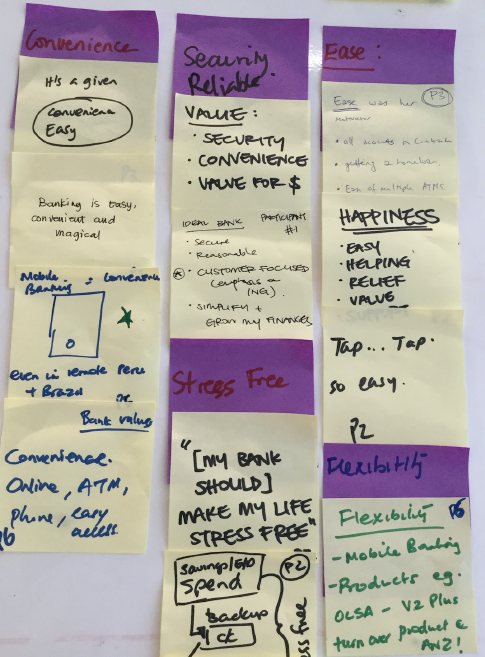 Convenience
It's a given
Convenience
Easy
P3
Banking is easy,
convenient and
magical
Mobile = Convenience
Banking
even in remote Peru
+ Brazil
Bank values
Convenience.
Online, ATM,
phone, easy
access
P6
Security
Reliable.
VALUE:
• SECURITY
• CONVENIENCE
• VALUE FOR $
IDEAL BANK PARTICIPANT
#1
• Secure
• Reasonable
• CUSTOMER FOCUSED
(emphasis on
ING).
• SIMPLIFY +
GROW MY FINANCES
Stress Free
"[MY BANK
SHOULD]
MAKE MY LIFE
STRESS FREE"
P2
Savings/
Spend
backup
ct
stress free
Ease:
Ease was her P3
motivator
• all accounts in
• getting a home loan.
• Ease of multiple ATMS
HAPPINESS
• EASY
• HELPING
• RELIEF
• VALUE
Tap... Tap.
so easy.
P2
Flexibility
Flexibility P6
- Mobile Banking
- Products eg.
OLSA - V2 Plus
turn over product @
ANZ!